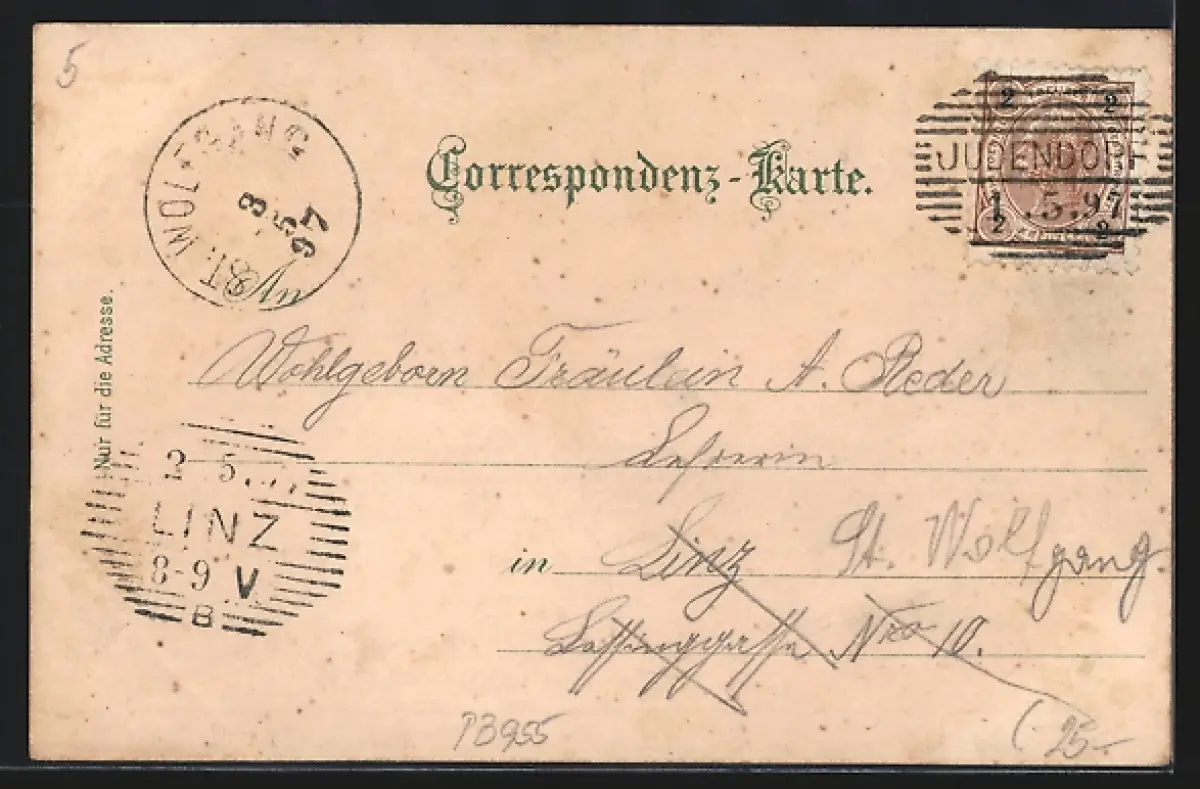 5
ST. WOLFGANG
3
5
97
Correspondenz-Karte.
2 2
JUDENDORF
1.5.97
2 2
An
Nur für die Adresse.
Wohlgeborn Fräulein A. Reder
Lehrerin
2 5
LINZ
8-9 V
B
in Linz St. Wolfgang.
Lessinggasse Nro 10.
PB955
25-